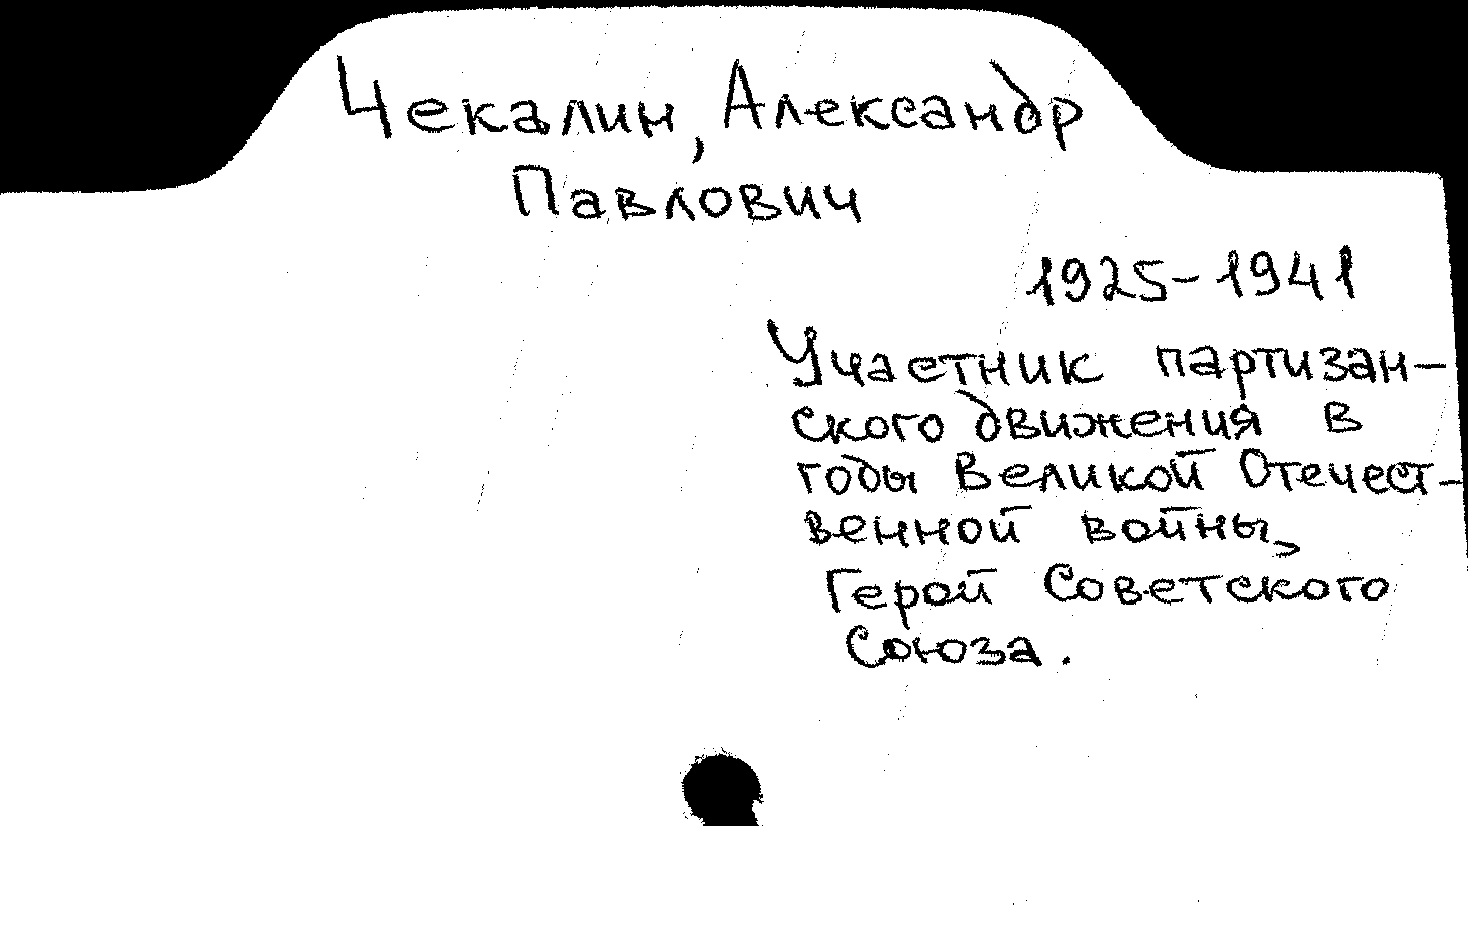 Чекалин, Александр
Павлович
1925-1941
Участник партизан-
ского движения в
годы Великой Отечест-
венной войны,
Герой Советского
Союза.